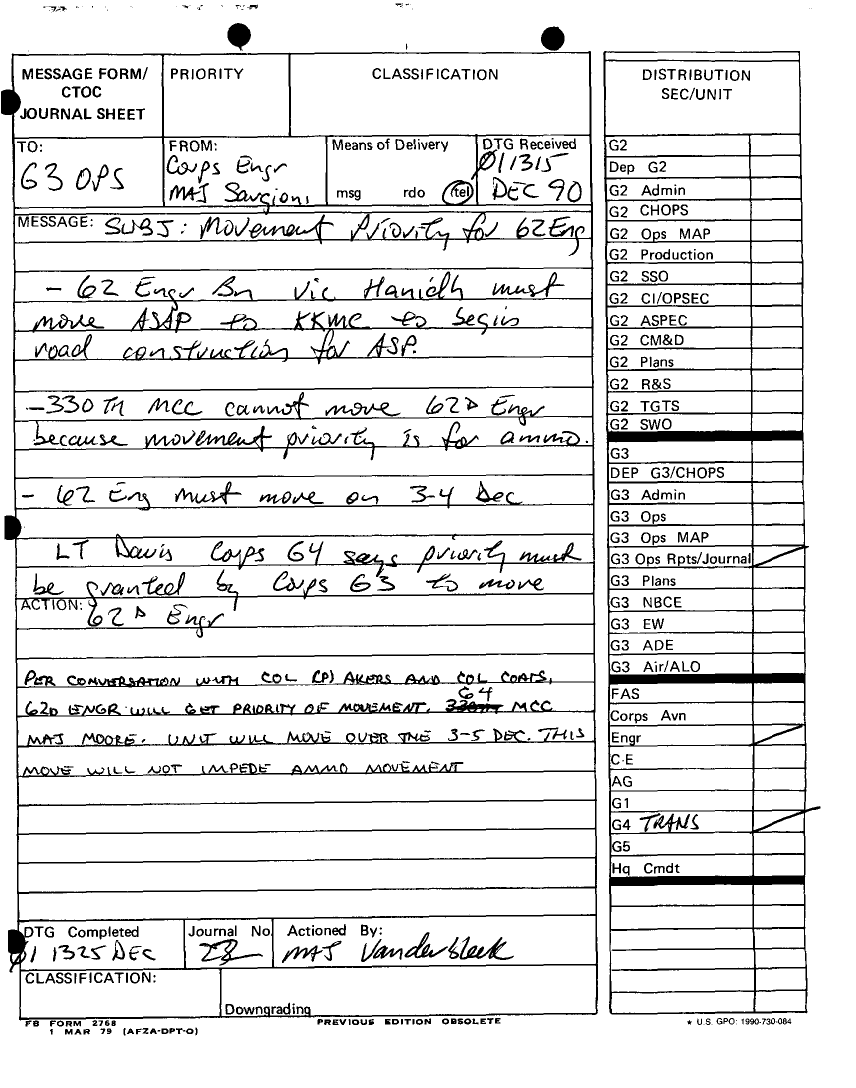 MESSAGE FORM/
CTOC
JOURNAL SHEET
PRIORITY
CLASSIFICATION
TO:
G3 OPS
FROM:
Corps Engr
MAJ
Means of Delivery
msg rdo tel
DTG Received
011315
DEC 90
MESSAGE: SUBJ: Movement Priority for 62 Eng
- 62 Engr Bn vic must
move ASAP to KKMC to begin
road construction for ASP.
- 330 TH MCC cannot move 62D Engr
because movement priority is for ammo.
- 62 Eng must move on 3-4 Dec
LT Davis Corps G4 says priority must
be granted by Corps G3 to move
ACTION: 62D Engr
PER CONVERSATION WITH COL (P) AKERS AND COL COATS,
62D ENGR WILL GET PRIORITY OF MOVEMENT. G4 MCC
MAJ MOORE. UNIT WILL MOVE OVER THE 3-5 DEC. THIS
MOVE WILL NOT IMPEDE AMMO MOVEMENT
DTG Completed
011325 DEC
Journal No.
Actioned By:
MAJ Vanderbleek
CLASSIFICATION:
Downgrading
FB FORM 2768
1 MAR 79 (AFZA-DPT-O)
PREVIOUS EDITION OBSOLETE
DISTRIBUTION
SEC/UNIT
G2
Dep G2
G2 Admin
G2 CHOPS
G2 Ops MAP
G2 Production
G2 SSO
G2 CI/OPSEC
G2 ASPEC
G2 CM&D
G2 Plans
G2 R&S
G2 TGTS
G2 SWO
G3
DEP G3/CHOPS
G3 Admin
G3 Ops
G3 Ops MAP
G3 Ops Rpts/Journal
G3 Plans
G3 NBCE
G3 EW
G3 ADE
G3 Air/ALO
FAS
Corps Avn
Engr
C-E
AG
G1
G4 TRANS
G5
Hq Cmdt
★ U.S. GPO: 1990-730-084